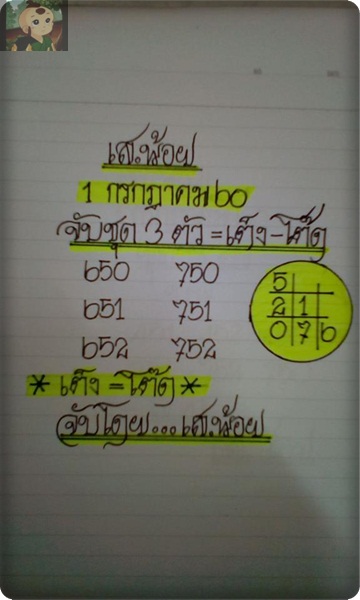 เส.น้อย
1 กรกฎาคม 60
จับชุด 3 ตัว = เต็ง-โต๊ด
650 750
651 751
652 752
5
2 1
0 7 6
* เต็ง = โต๊ด *
จับโดย...เส.น้อย